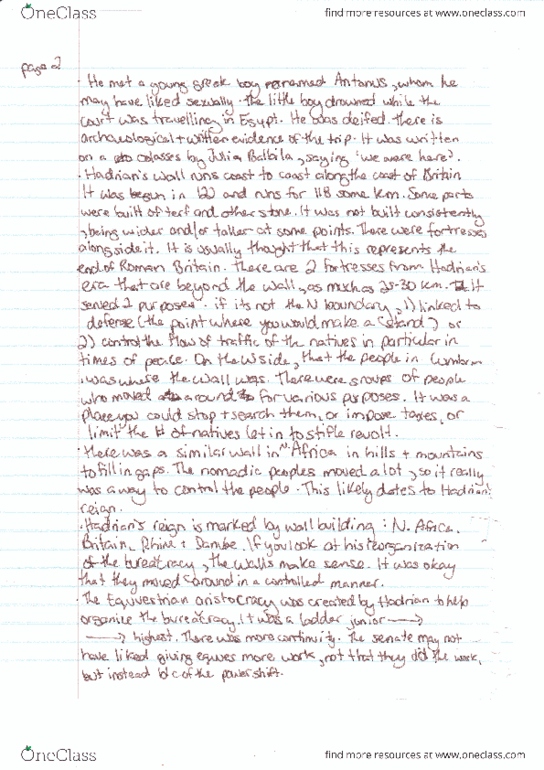 OneClass
find more resources at www.oneclass.com
page 2
· He met a young greek boy named Antanus, whom he
may have liked sexually. The little boy drowned while the
court was travelling in Egypt. He was deifed. there is
archaeological + written evidence of the trip. It was written
on a colasses by Julia Balbila, saying 'we were here'.
· Hadrian's wall runs coast to coast along the coast of Britain
It was begun in 120 and runs for 118 some km. Some parts
were built of terf and other stone. It was not built consistently
, being wider and/or taller at some points. There were fortresses
alongside it. It is usually thought that this represents the
end of Roman Britain. There are 2 fortresses from Hadrian's
era that are beyond the wall, as much as 25-30 km. It
served 2 purposes. if its not the N boundary, 1) linked to
defense (the point where you would make a stand) or
2) control the flow of traffic of the natives in particular in
times of peace. On the W side, that the people in
was where the wall was. There were groups of people
who moved around for various purposes. It was a
place you could stop + search them, or impose taxes, or
limit the # of natives let in to stifle revolt.
· there was a similar wall in N. Africa in hills + mountains
to fill in gaps. The nomadic peoples moved a lot, so it really
was a way to control the people. This likely dates to Hadrian's
reign.
· Hadrian's reign is marked by wall building : N. Africa,
Britain, Rhine + Danube. If you look at his reorganization
of the bureatcracy, the walls make sense. It was okay
that they moved around in a controlled manner.
· The Equvestrian aristocracy was created by Hadrian to help
organize the bureatcracy. It was a ladder junior →
→ highest. There was more continuity. The senate may not
have liked giving equves more work, not that they did the work,
but instead b/c of the power shift.
OneClass
find more resources at www.oneclass.com